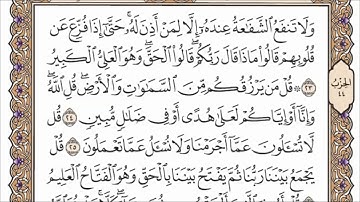 وَلَا تَنفَعُ ٱلشَّفَـٰعَةُ عِندَهُۥٓ إِلَّا لِمَنْ أَذِنَ لَهُۥ ۚ حَتَّىٰٓ إِذَا فُزِّعَ عَن
قُلُوبِهِمْ قَالُوا۟ مَاذَا قَالَ رَبُّكُمْ ۖ قَالُوا۟ ٱلْحَقَّ ۖ وَهُوَ ٱلْعَلِىُّ ٱلْكَبِيرُ
٢٣ ۞ قُلْ مَن يَرْزُقُكُم مِّنَ ٱلسَّمَـٰوَٰتِ وَٱلْأَرْضِ ۖ قُلِ ٱللَّهُ ۖ
وَإِنَّآ أَوْ إِيَّاكُمْ لَعَلَىٰ هُدًى أَوْ فِى ضَلَـٰلٍ مُّبِينٍ ٢٤ قُل
لَّا تُسْـَٔلُونَ عَمَّآ أَجْرَمْنَا وَلَا نُسْـَٔلُ عَمَّا تَعْمَلُونَ ٢٥ قُلْ
يَجْمَعُ بَيْنَنَا رَبُّنَا ثُمَّ يَفْتَحُ بَيْنَنَا بِٱلْحَقِّ وَهُوَ ٱلْفَتَّاحُ ٱلْعَلِيمُ
الحزب
٤٤